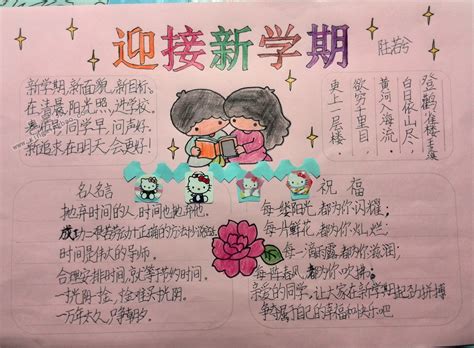 迎接新学期
陆若兮
新学期,新面貌,新目标,
在清晨阳光照,进学校,
老师好同学早,问声好.
新追求在明天会更好!
登鹳雀楼
白日依山尽,
黄河入海流
欲穷千里目,
更上一层楼,
名人名言
抛弃时间的人,时间也抛弃他.
成功=艰苦劳动+正确的方法+少说空话
时间是伟大的导师.
合理安排时间,就等于节约时间.
一万年太久,只争朝夕
祝福
每一缕阳光,都为你闪耀;
每一月鲜花,都为你灿烂;
每一滴雨露,都为你滋润;
都为你吹拂;
亲爱的同学,让大家在新学期起拼搏
属于自己的幸福和快乐吧